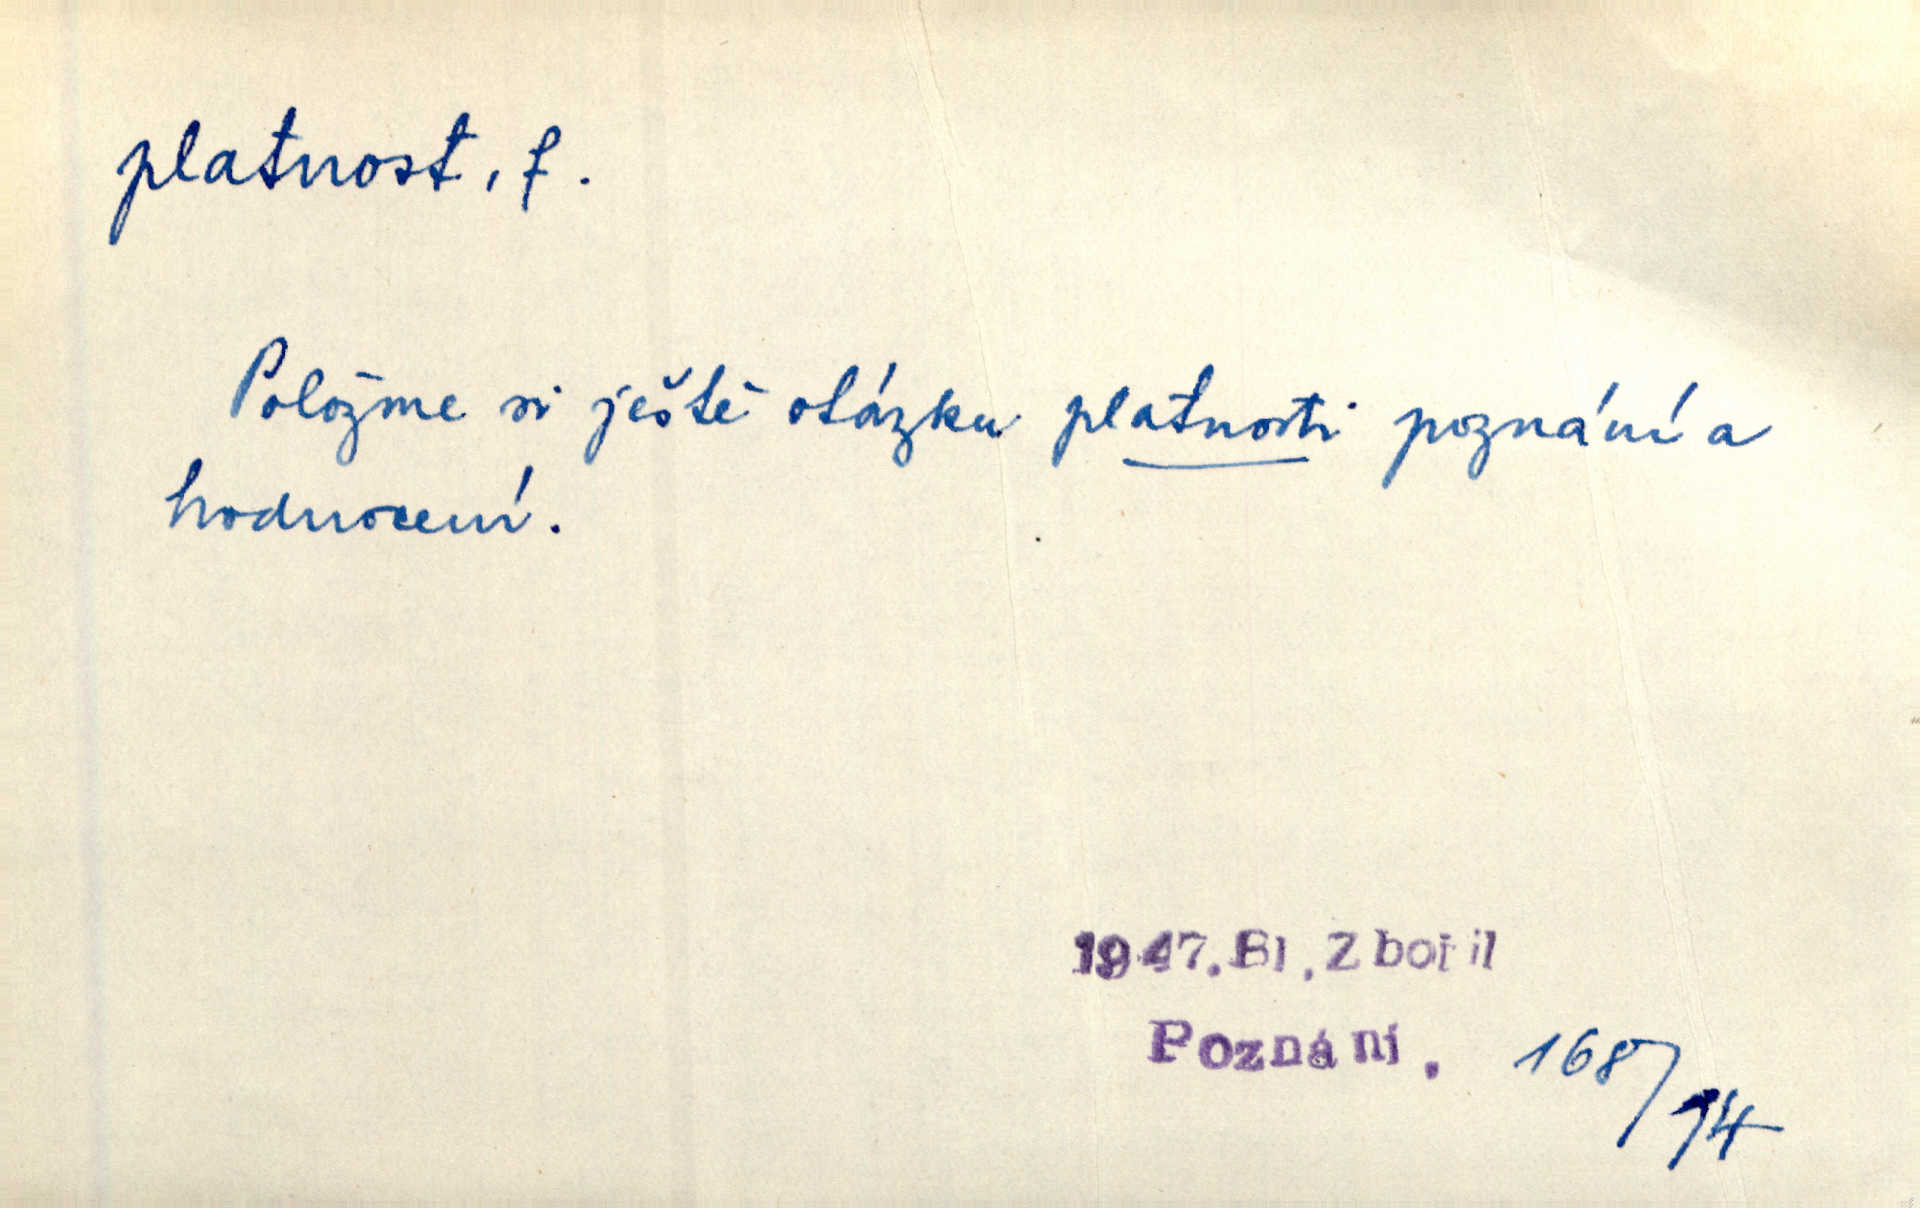 platnost, f.
Položme si ještě otázku platnosti poznání a
hodnocení.
1947. Bl. Zbořil
Poznání. 168/94